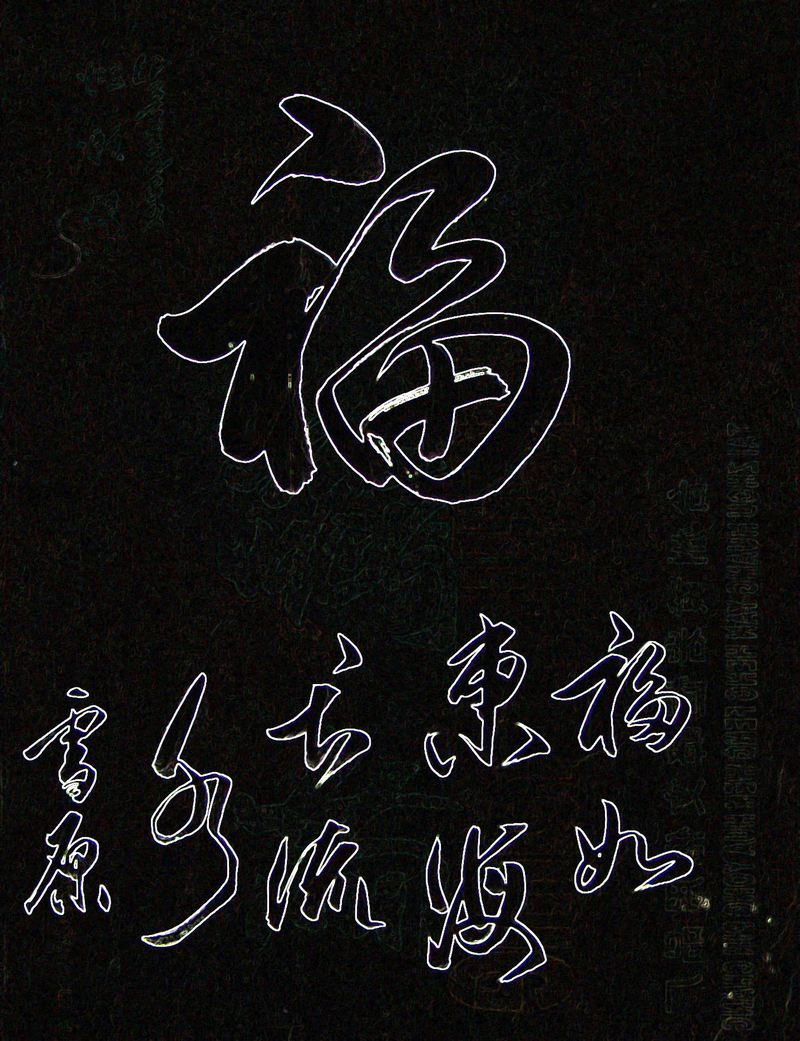 福
福如
東海
长流
水
雪原